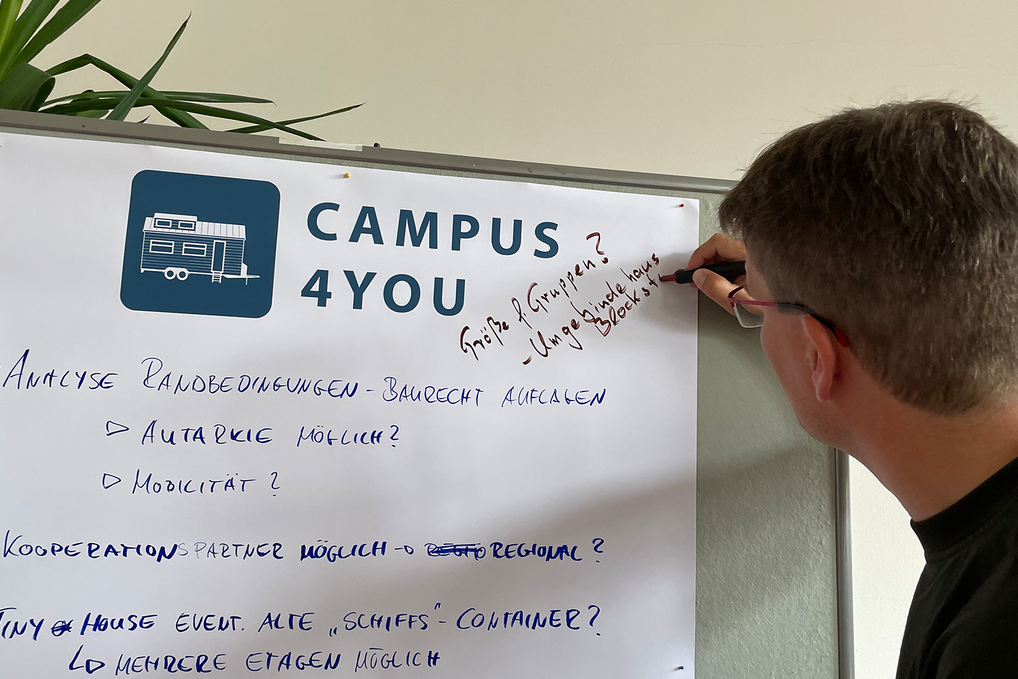 CAMPUS
4YOU
Größe f Gruppen?
- Umgebindehaus
ANALYSE RANDBEDINGUNGEN - BAURECHT AUFLAGEN
▷ AUTARKIE MÖGLICH?
▷ MOBILITÄT?
KOOPERATIONSPARTNER MÖGLICH → REGIONAL?
TINY HOUSE EVENT. ALTE „SCHIFFS"-CONTAINER?
↳ MEHRERE ETAGEN MÖGLICH